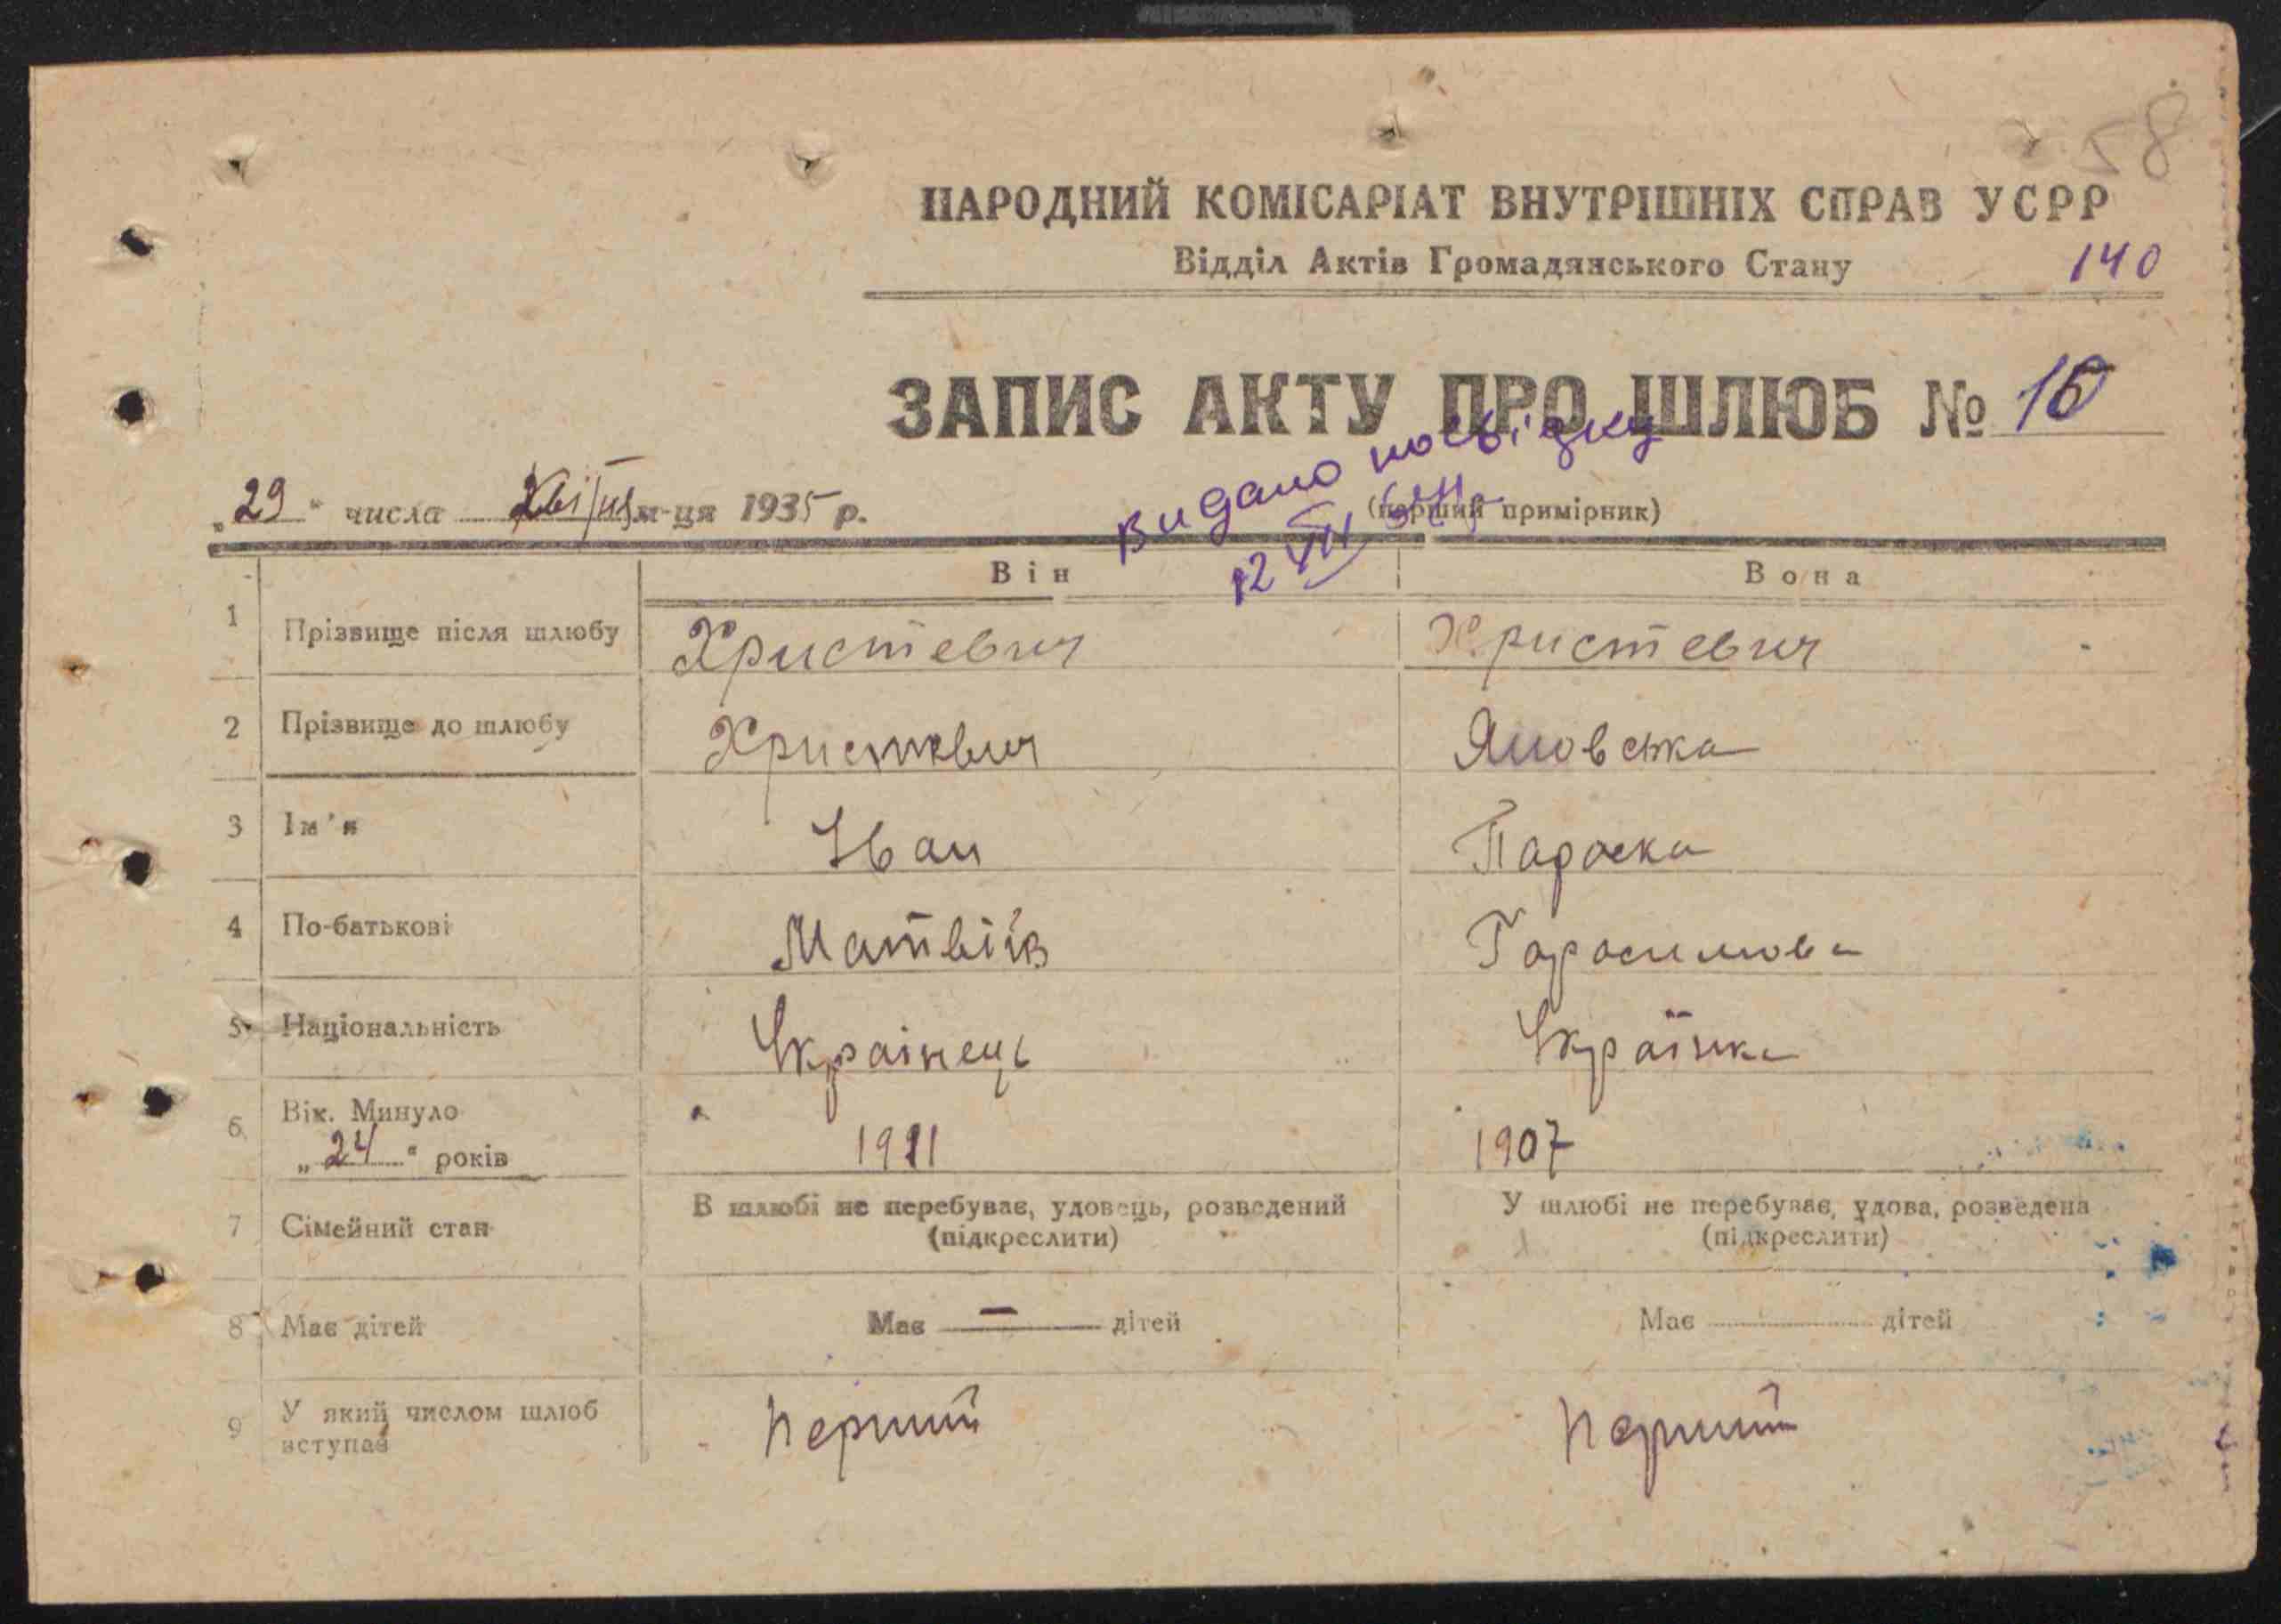 58
НАРОДНИЙ КОМІСАРІАТ ВНУТРІШНІХ СПРАВ УСРР
Відділ Актів Громадянського Стану
140
ЗАПИС АКТУ ПРО ШЛЮБ №
„29" числа квітня м-ця 1935 р.
(перший примірник)
Видано посвідку
12 VII
Він Вона
1 Прізвище після шлюбу Христевич Христевич
2 Прізвище до шлюбу Христевич Яновська
3 Ім'я Іван Параска
4 По-батькові Матвіїв Гарасимова
5 Національність Українець Українка
6 Вік. Минуло 1911 1907
„24" років
7 Сімейний стан В шлюбі не перебуває, удовець, розведений У шлюбі не перебуває, удова, розведена
(підкреслити) (підкреслити)
8 Має дітей Має — дітей Має дітей
9 У який числом шлюб Перший Перший
вступає